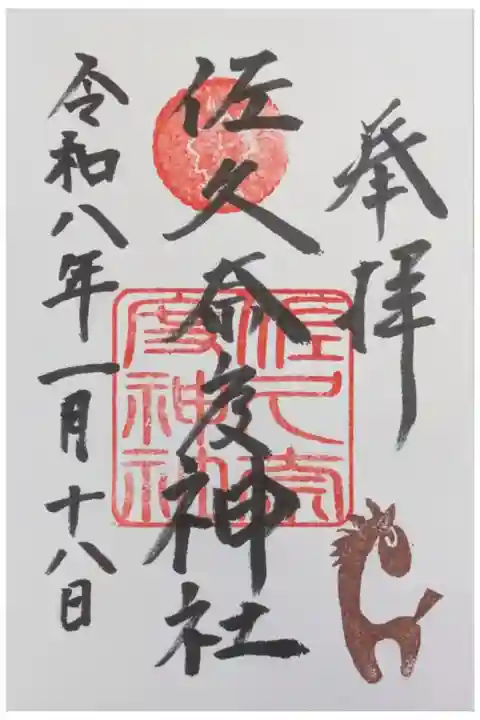 奉拝
佐久奈度神社
佐久奈度神社
令和八年一月十八日